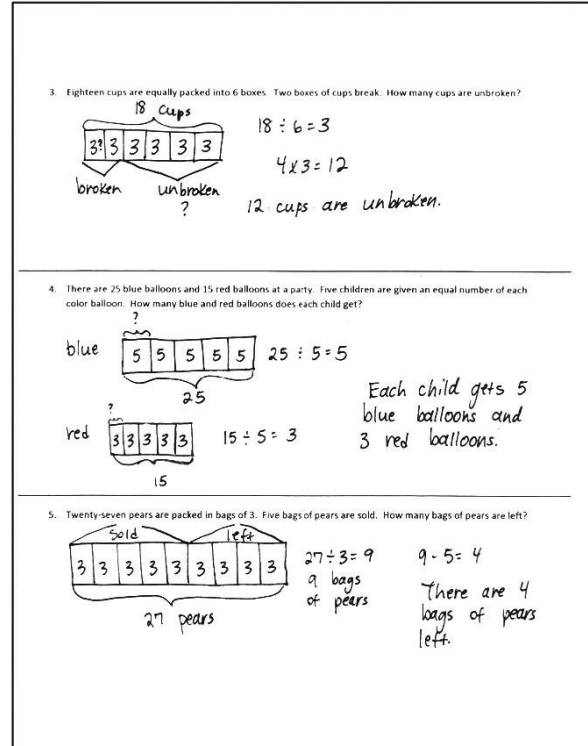 3. Eighteen cups are equally packed into 6 boxes. Two boxes of cups break. How many cups are unbroken?
18 cups
18 ÷ 6 = 3
3? 3 3 3 3 3
4 x 3 = 12
broken unbroken
?
12 cups are unbroken.
4. There are 25 blue balloons and 15 red balloons at a party. Five children are given an equal number of each
color balloon. How many blue and red balloons does each child get?
?
blue 5 5 5 5 5 25 ÷ 5 = 5
25
Each child gets 5
blue balloons and
3 red balloons.
?
red 3 3 3 3 3 15 ÷ 5 = 3
15
5. Twenty-seven pears are packed in bags of 3. Five bags of pears are sold. How many bags of pears are left?
sold left
3 3 3 3 3 3 3 3 3
27 pears
27 ÷ 3 = 9
9 bags
of pears
9 - 5 = 4
There are 4
bags of pears
left.